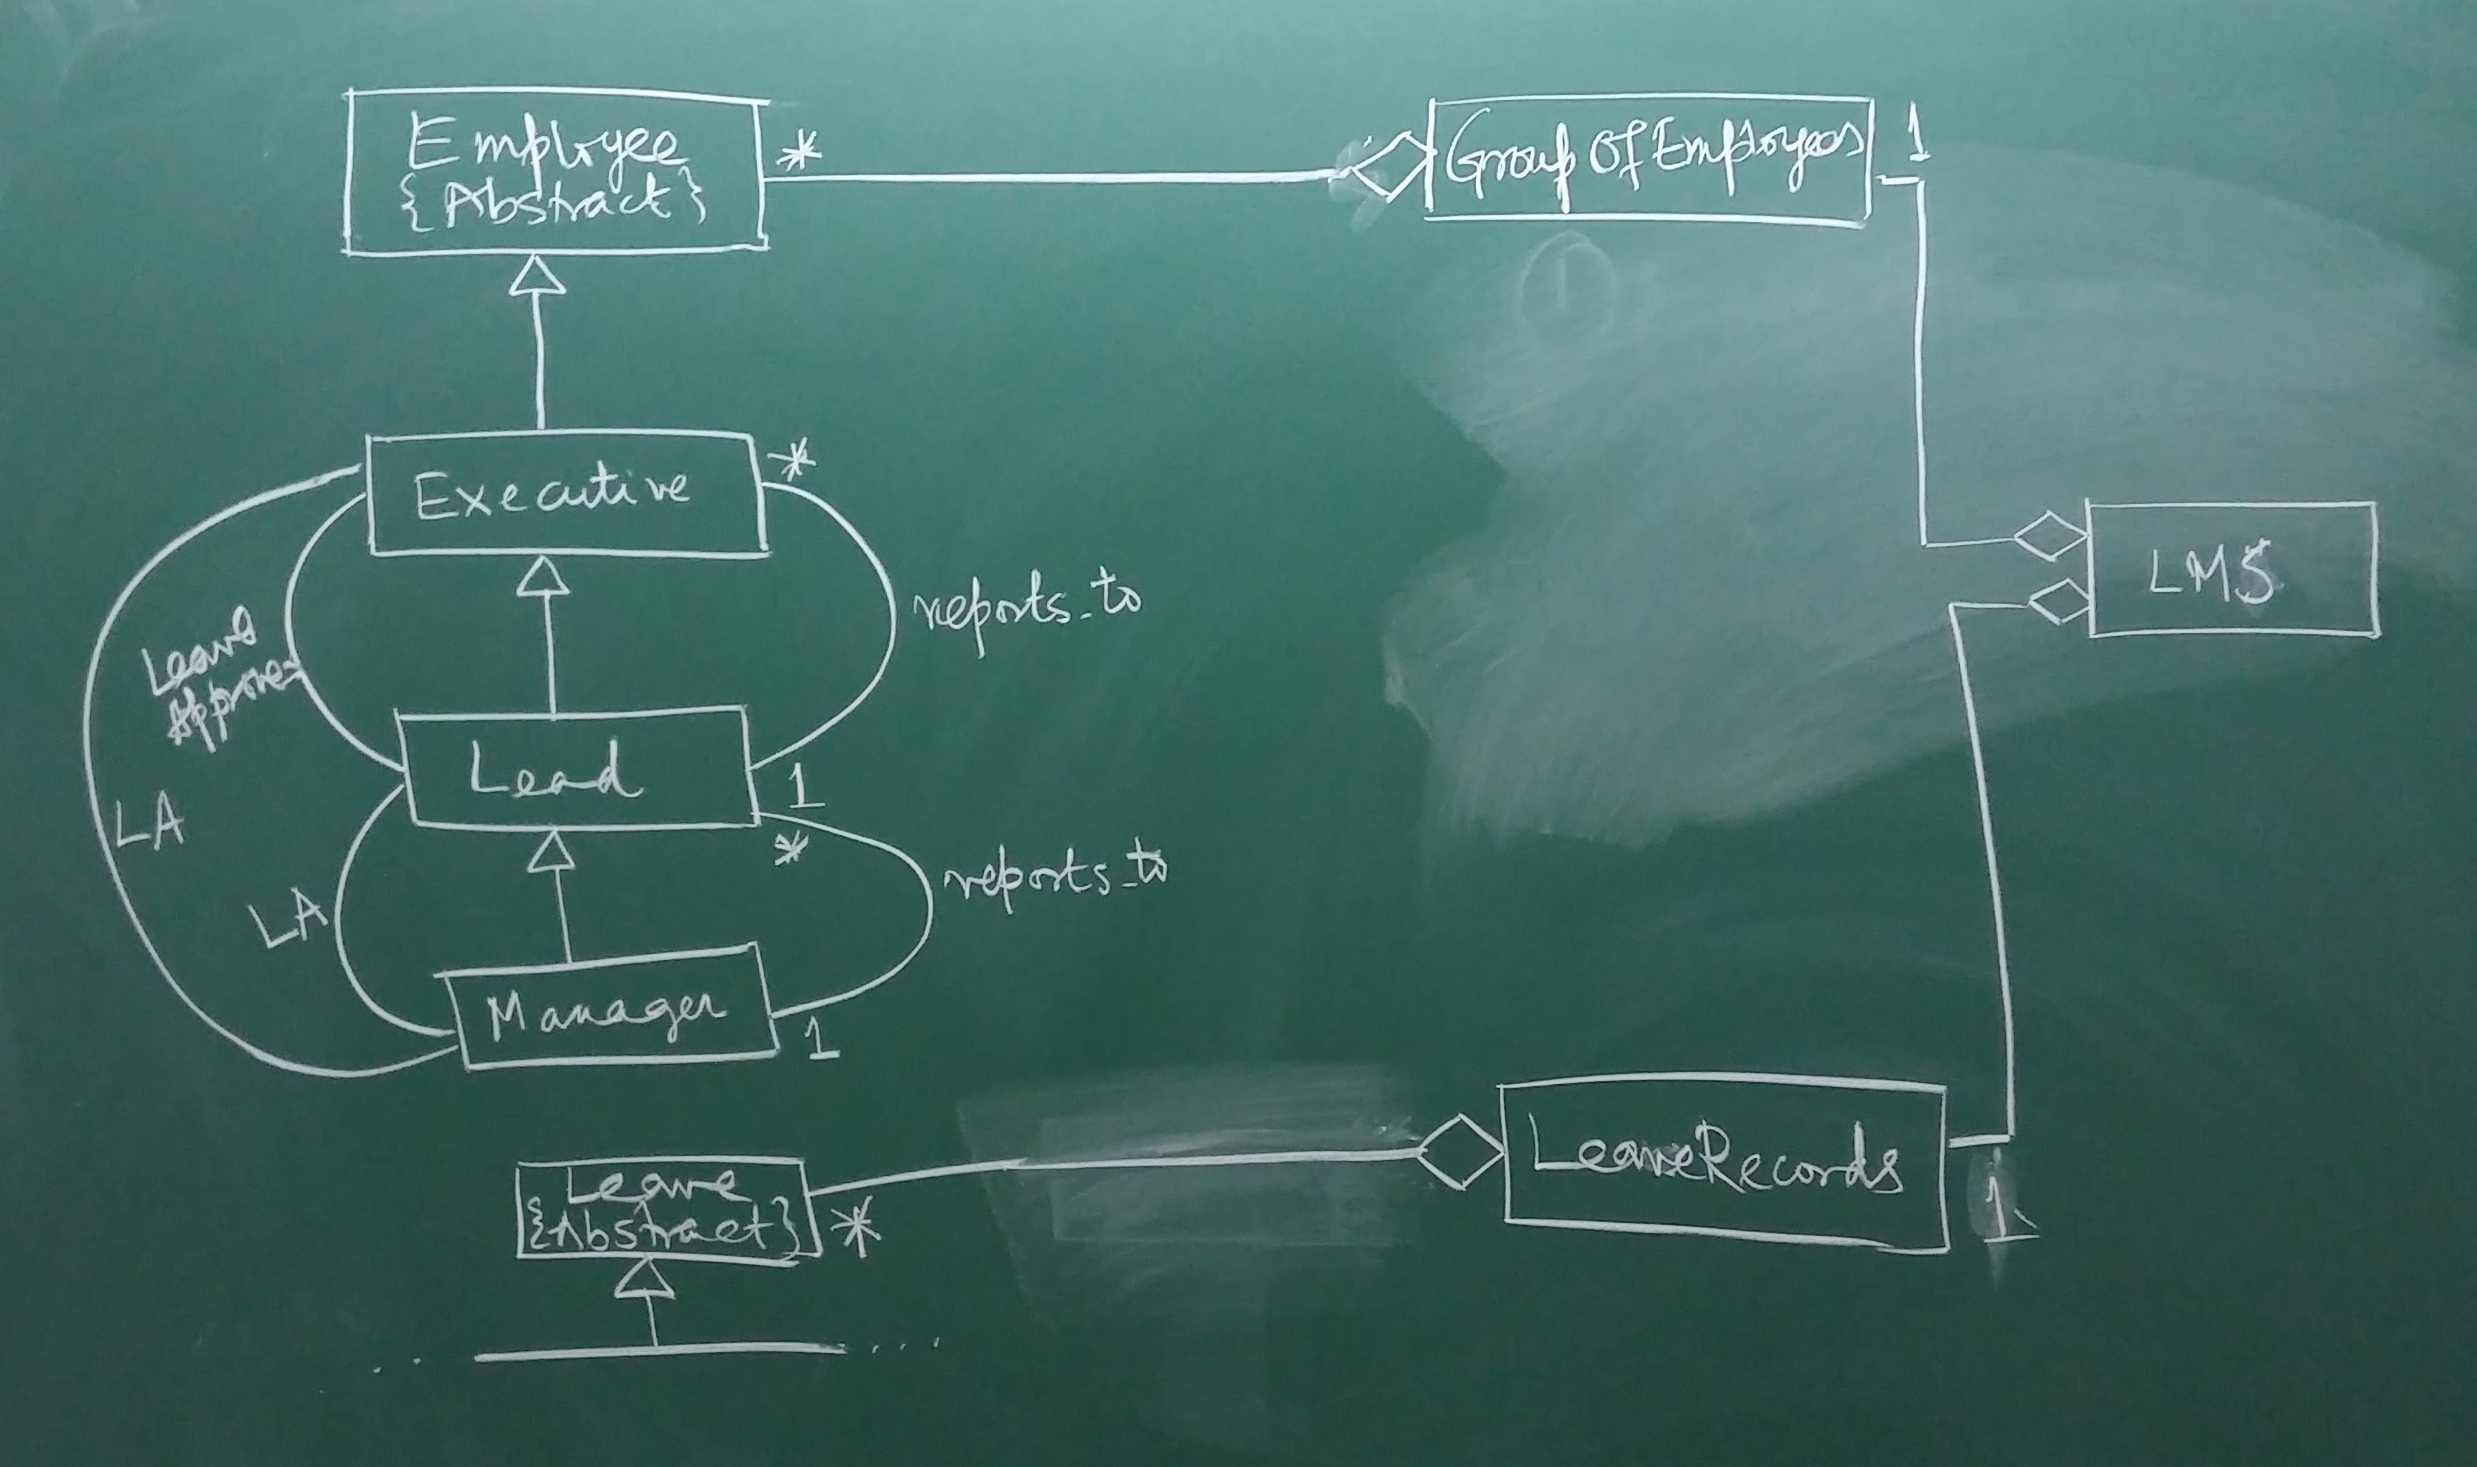 Employee
{Abstract}
*
GroupOfEmployees
1
Executive
*
reports_to
Leave
Approves
Lead
1
*
LA
LA
reports_to
Manager
1
LMS
Leave
{Abstract}
*
LeaveRecords
1
.. ....